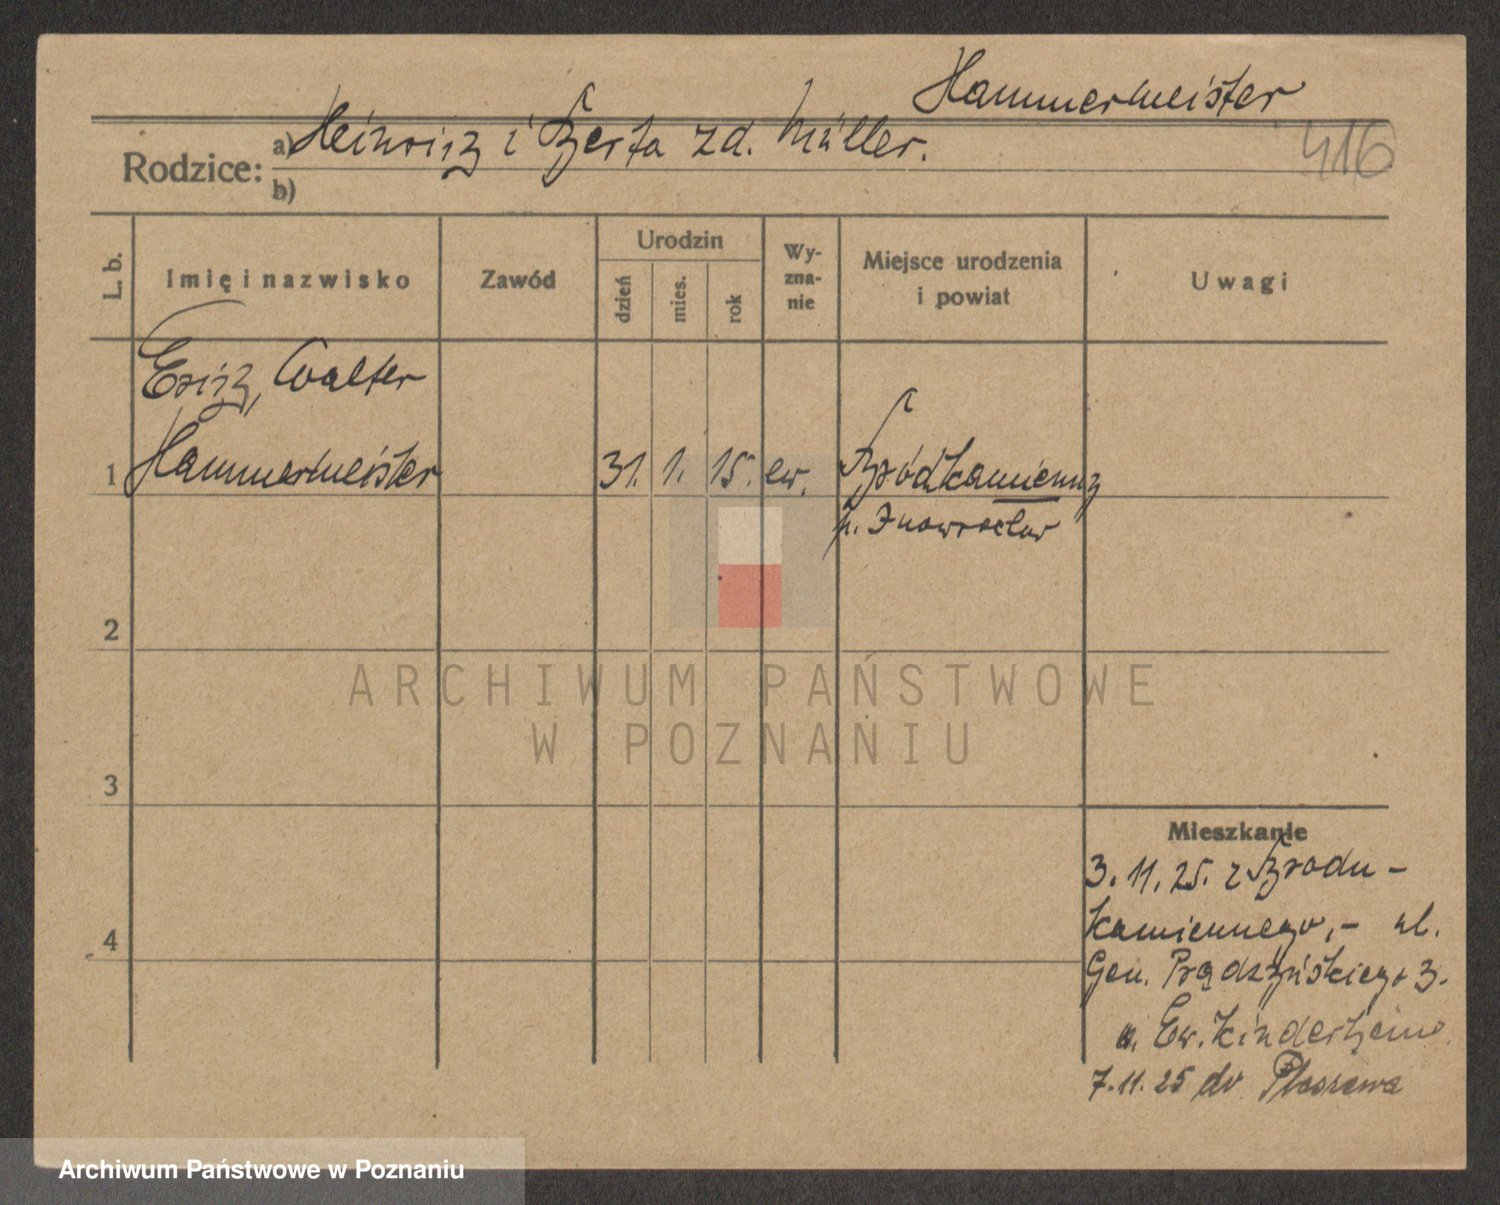 Hammermeister
Rodzice: a) Heinrich i Berta zd. Müller.
416
b)
L. b.
Imię i nazwisko
Zawód
Urodzin
dzień
mies.
rok
Wy-
zna-
nie
Miejsce urodzenia
i powiat
Uwagi
Erich, Walter
1 Hammermeister 31. 1. 15. ew. Bródkamienny
p. Inowrocław
2
ARCHIWUM PAŃSTWOWE
W POZNANIU
3
Mieszkanie
3. 11. 25. z Brodu-
4
kamiennego,- ul.
Gen. Prądzyńskiego 3.
Ew. Kinderheim.
7.11.25 do Pleszewa
Archiwum Państwowe w Poznaniu